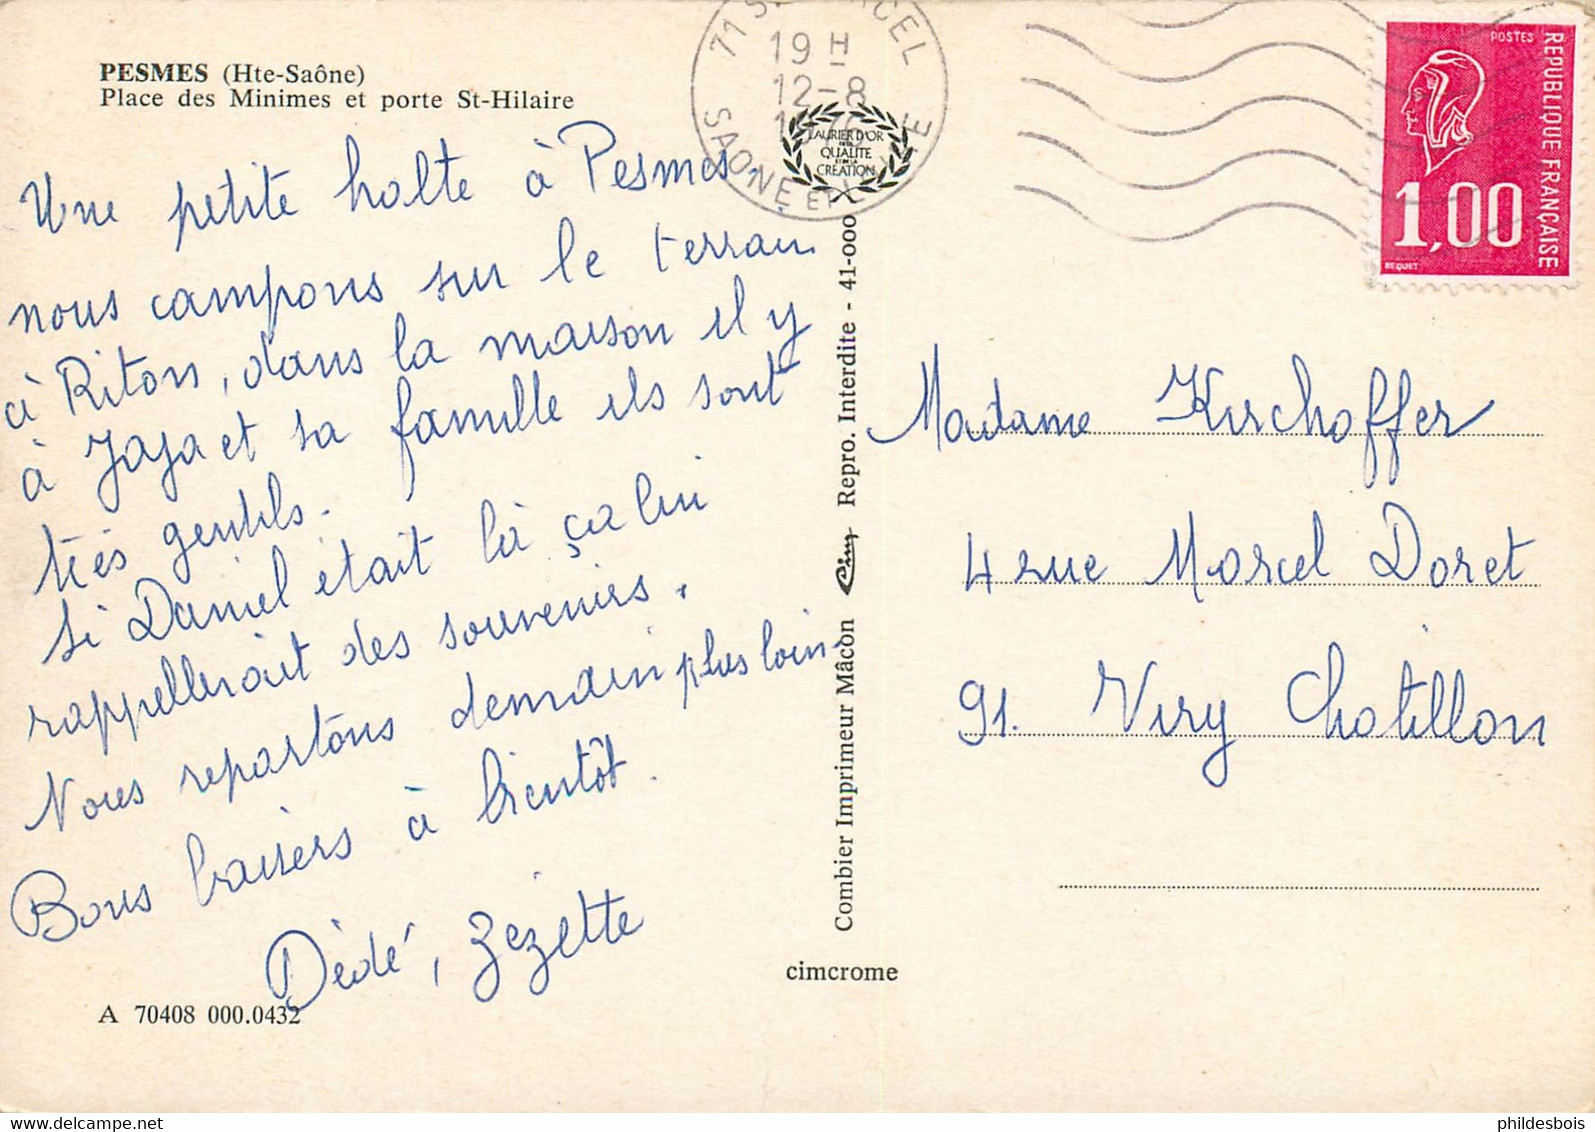 PESMES (Hte-Saône)
Place des Minimes et porte St-Hilaire
Une petite halte à Pesmes.
nous campons sur le terrain
à Riton, dans la maison il y
à Jaja et sa famille ils sont
très gentils.
si Daniel était là ça lui
rappellerait des souvenirs.
Nous repartons demain plus loin
Bons baisers à bientôt.
Dédé, Zézette
A 70408 000.0432
cimcrome
Combier Imprimeur Mâcon Cim Repro. Interdite - 41-000
LAURIER D'OR
DE LA
QUALITÉ
ET DE LA
CRÉATION
71 ST MARCEL
19 H
12-8
SAONE ET LOIRE
POSTES
REPUBLIQUE FRANÇAISE
1,00
BEQUET
Madame Kirchoffer
4 rue Marcel Doret
91. Viry Chatillon
phildesbois